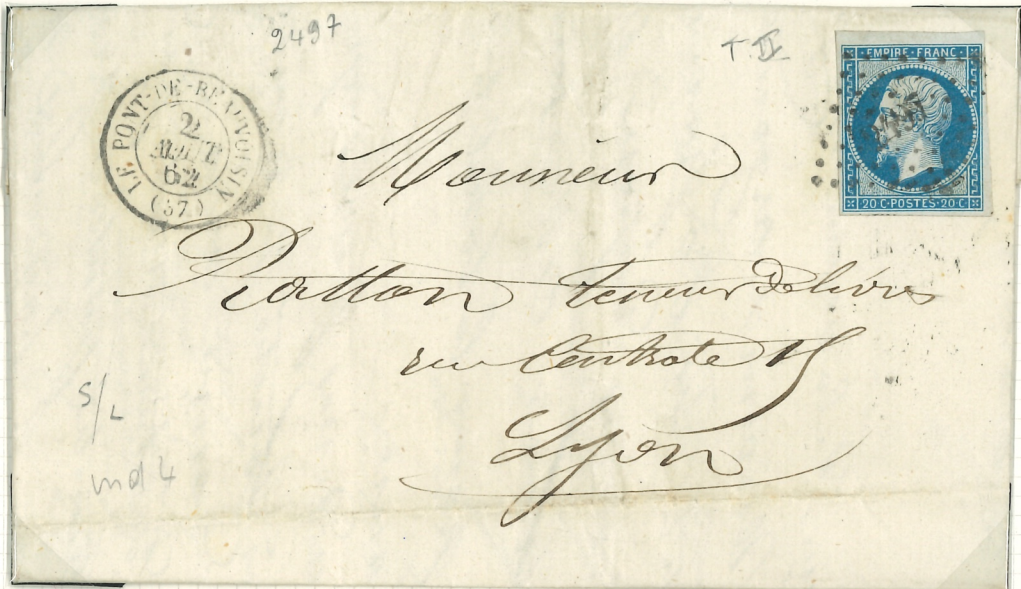 2497
T II
EMPIRE·FRANC·
20 C·POSTES·20 C·
LE PONT-DE-BEAUVOISIN
2
AOUT
62
(37)
Monsieur
Ratton teneur de livres
rue Centrale 15
Lyon
S/L
ind 4